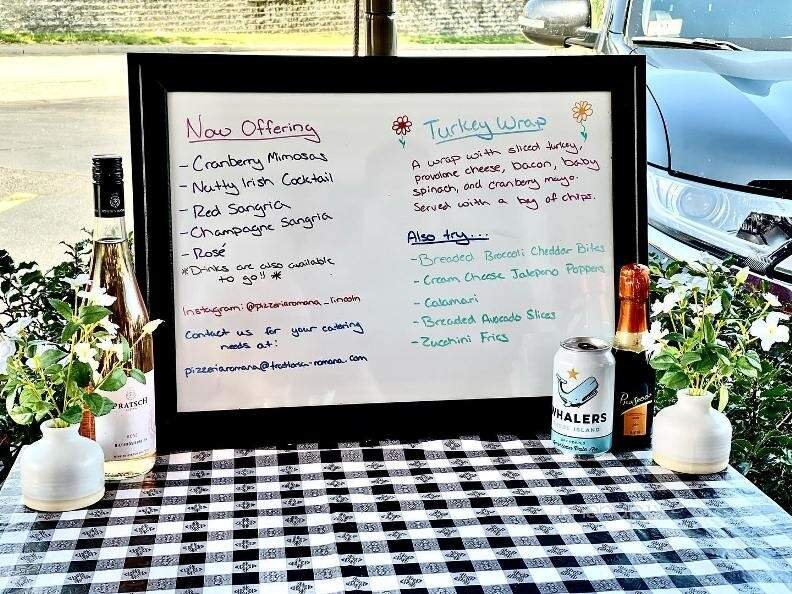 Now Offering
- Cranberry Mimosas
- Nutty Irish Cocktail
- Red Sangria
- Champagne Sangria
- Rosé
*Drinks are also available
to go!! *
Instagram: @pizzeriaromana_lincoln
Contact us for your catering
needs at:
pizzeriaromana@trattoria-romana.com
Turkey Wrap
A wrap with sliced turkey,
provolone cheese, bacon, baby
spinach, and cranberry mayo.
Served with a bag of chips.
Also try...
- Breaded Broccoli Cheddar Bites
- Cream Cheese Jalepeno Poppers
- Calamari
- Breaded Avocado Slices
- Zucchini Fries
PRATSCH
WHALERS